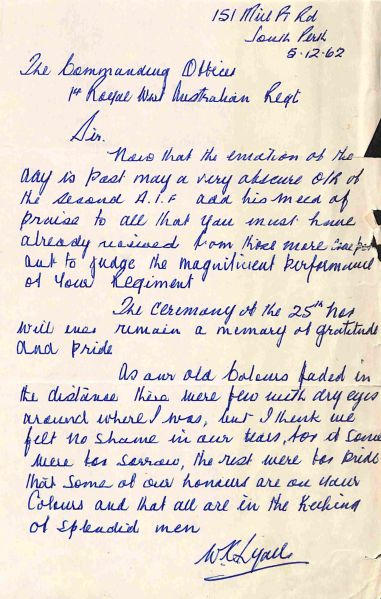 151 Mill Pt Rd
South Perth
5.12.62
The Commanding Officer
1st Royal West Australian Regt
Sir.
Now that the emotion of the
day is past may a very obscure O/R of
the second A.I.F add his meed of
praise to all that you must have
already received from those more
out to judge the magnificent performance
of your Regiment
The Ceremony of the 25th Nov
will ever remain a memory of gratitude
and pride
As our old Colours faded in
the distance there were few with dry eyes
around where I was, but I think we
felt no shame in our tears, for if some
were for sorrow, the rest were for pride
that some of our honours are on your
Colours and that all are in the keeping
of splendid men